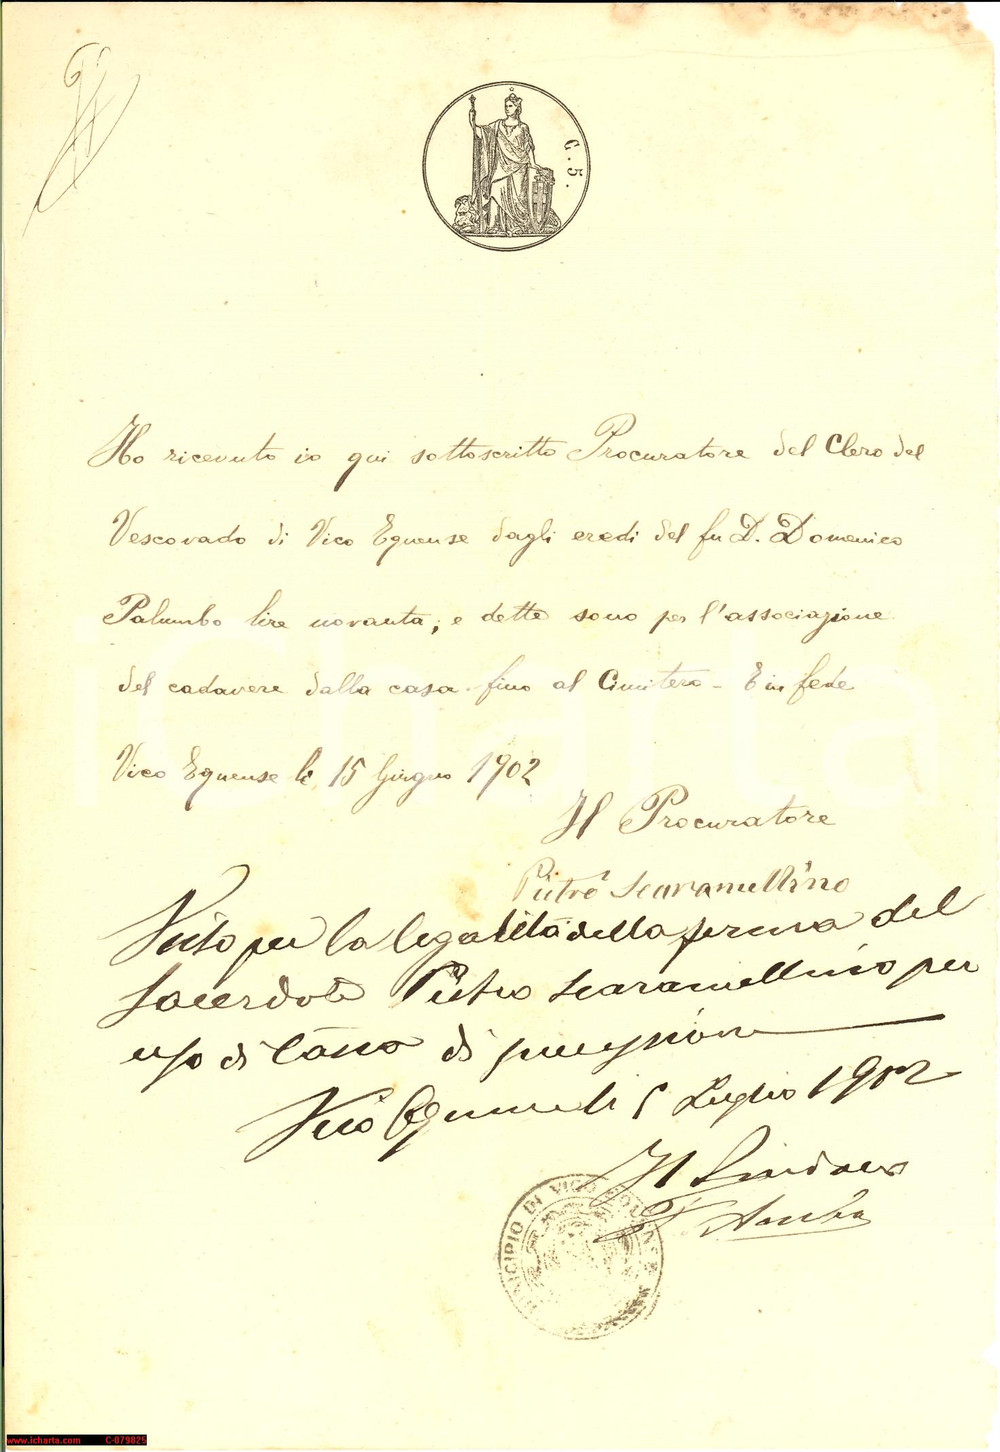 G. 5.
Ho ricevuto io qui sottoscritto Procuratore del Clero del
Vescovado di Vico Equense dagli eredi del fu D. Domenico
Palumbo lire novanta; e dette sono per l'associazione
del cadavere dalla casa fino al Cimitero - E in fede
Vico Equense li 15 Giugno 1902
Il Procuratore
Pietro Scaramellino
Visto per la legalità della firma del
Sacerdote Pietro Scaramellino per
uso di Cassa di pensione
Vico Equense li 5 Luglio 1902
Il Sindaco
MUNICIPIO DI VICO EQUENSE
iCharta
www.icharta.com C-079825